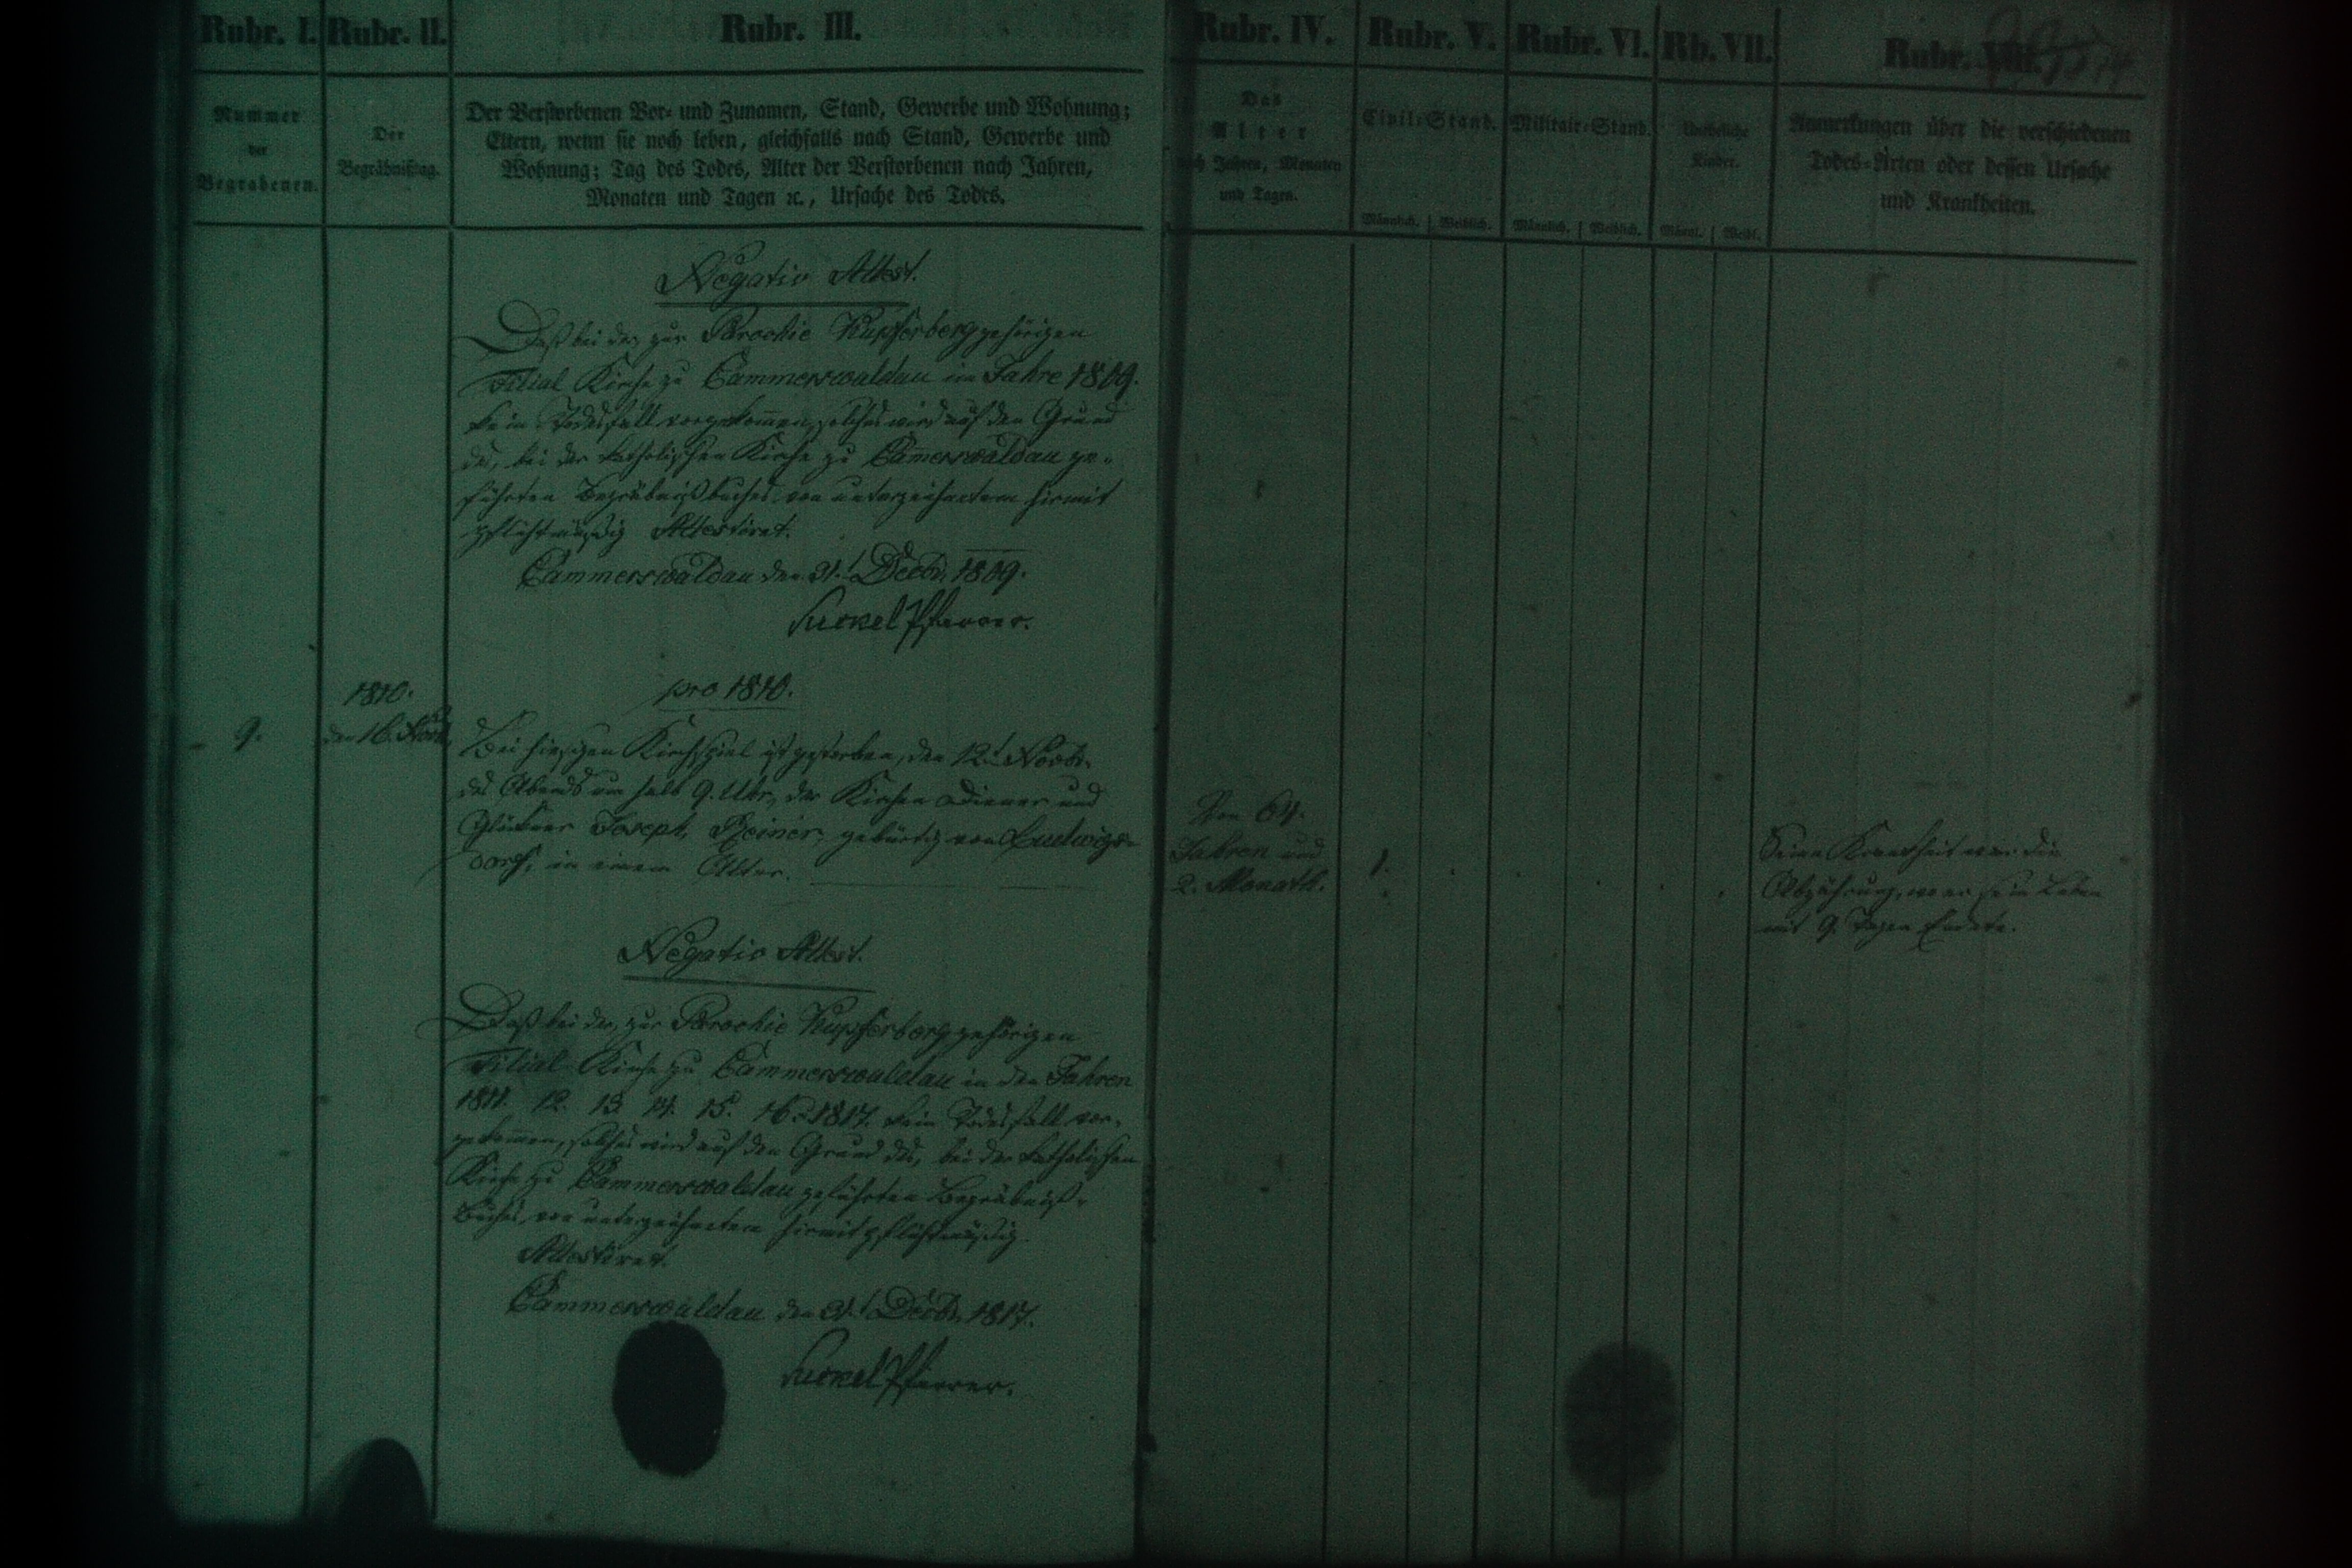 Rubr. I.
Rubr. II.
Rubr. III.
Rubr. IV.
Rubr. V.
Rubr. VI.
Rb. VII.
Rubr. VIII.
Nummer
der
Begrabenen.
Der
Begräbnißtag.
Der Verstorbenen Vor- und Zunamen, Stand, Gewerbe und Wohnung;
Eltern, wenn sie noch leben, gleichfalls nach Stand, Gewerbe und
Wohnung; Tag des Todes, Alter der Verstorbenen nach Jahren,
Monaten und Tagen ꝛc., Ursache des Todes.
Das
Alter
nach Jahren, Monaten
und Tagen.
Civil-Stand.
Männlich. Weiblich.
Militair-Stand.
Männlich. Weiblich.
Uneheliche
Kinder.
Männl. Weibl.
Anmerkungen über die verschiedenen
Todes-Arten oder dessen Ursache
und Krankheiten.
Negativ Attest.
Daß bei der zur Parochie Kupferberg gehörigen
Filial Kirche zu Cammerswaldau im Jahre 1809.
kein Todesfall vorgekom̄en, solches wird auf den Grund
des, bei der katholischen Kirche zu Cam̄erswaldau ge-
führten Begräbnißbuches von unterzeichnetem hiermit
pflichtmäßig Attestiret.
Cammerswaldau den 31.t Decbr. 1809.
Pfarrer.
1810.
pro 1810.
9.
den 16. Novb.
Bei hiesigen Kirchspiel ist gestorben, den 12.t Novbr.
des Abends um halb 9. Uhr, der Kirchen Diener und
Glöckner Joseph Reiner, gebürtig von Ludwigs-
dorf, in einem Alter.
Von 64.
Jahren und
2. Monath.
1.
Seine Krankheit war die
Abzehrung, wo er sein Leben
mit 9. Tagen Endete.
Negativ Attest.
Daß bei der, zur Parochie Kupferberg gehörigen
Filial Kirche zu Cammerswaldau in den Jahren
1811. 12. 13. 14. 15. 16. 1817. kein Todesfall vor-
gekom̄en, solches wird auf den Grund des, bei der katholischen
Kirche zu Cammerswaldau geführten Begräbniß-
Buches, von unterzeichnetem hiermit pflichtmäßig
Attestiret.
Cammerswaldau den 31.t Decbr. 1817.
Pfarrer.